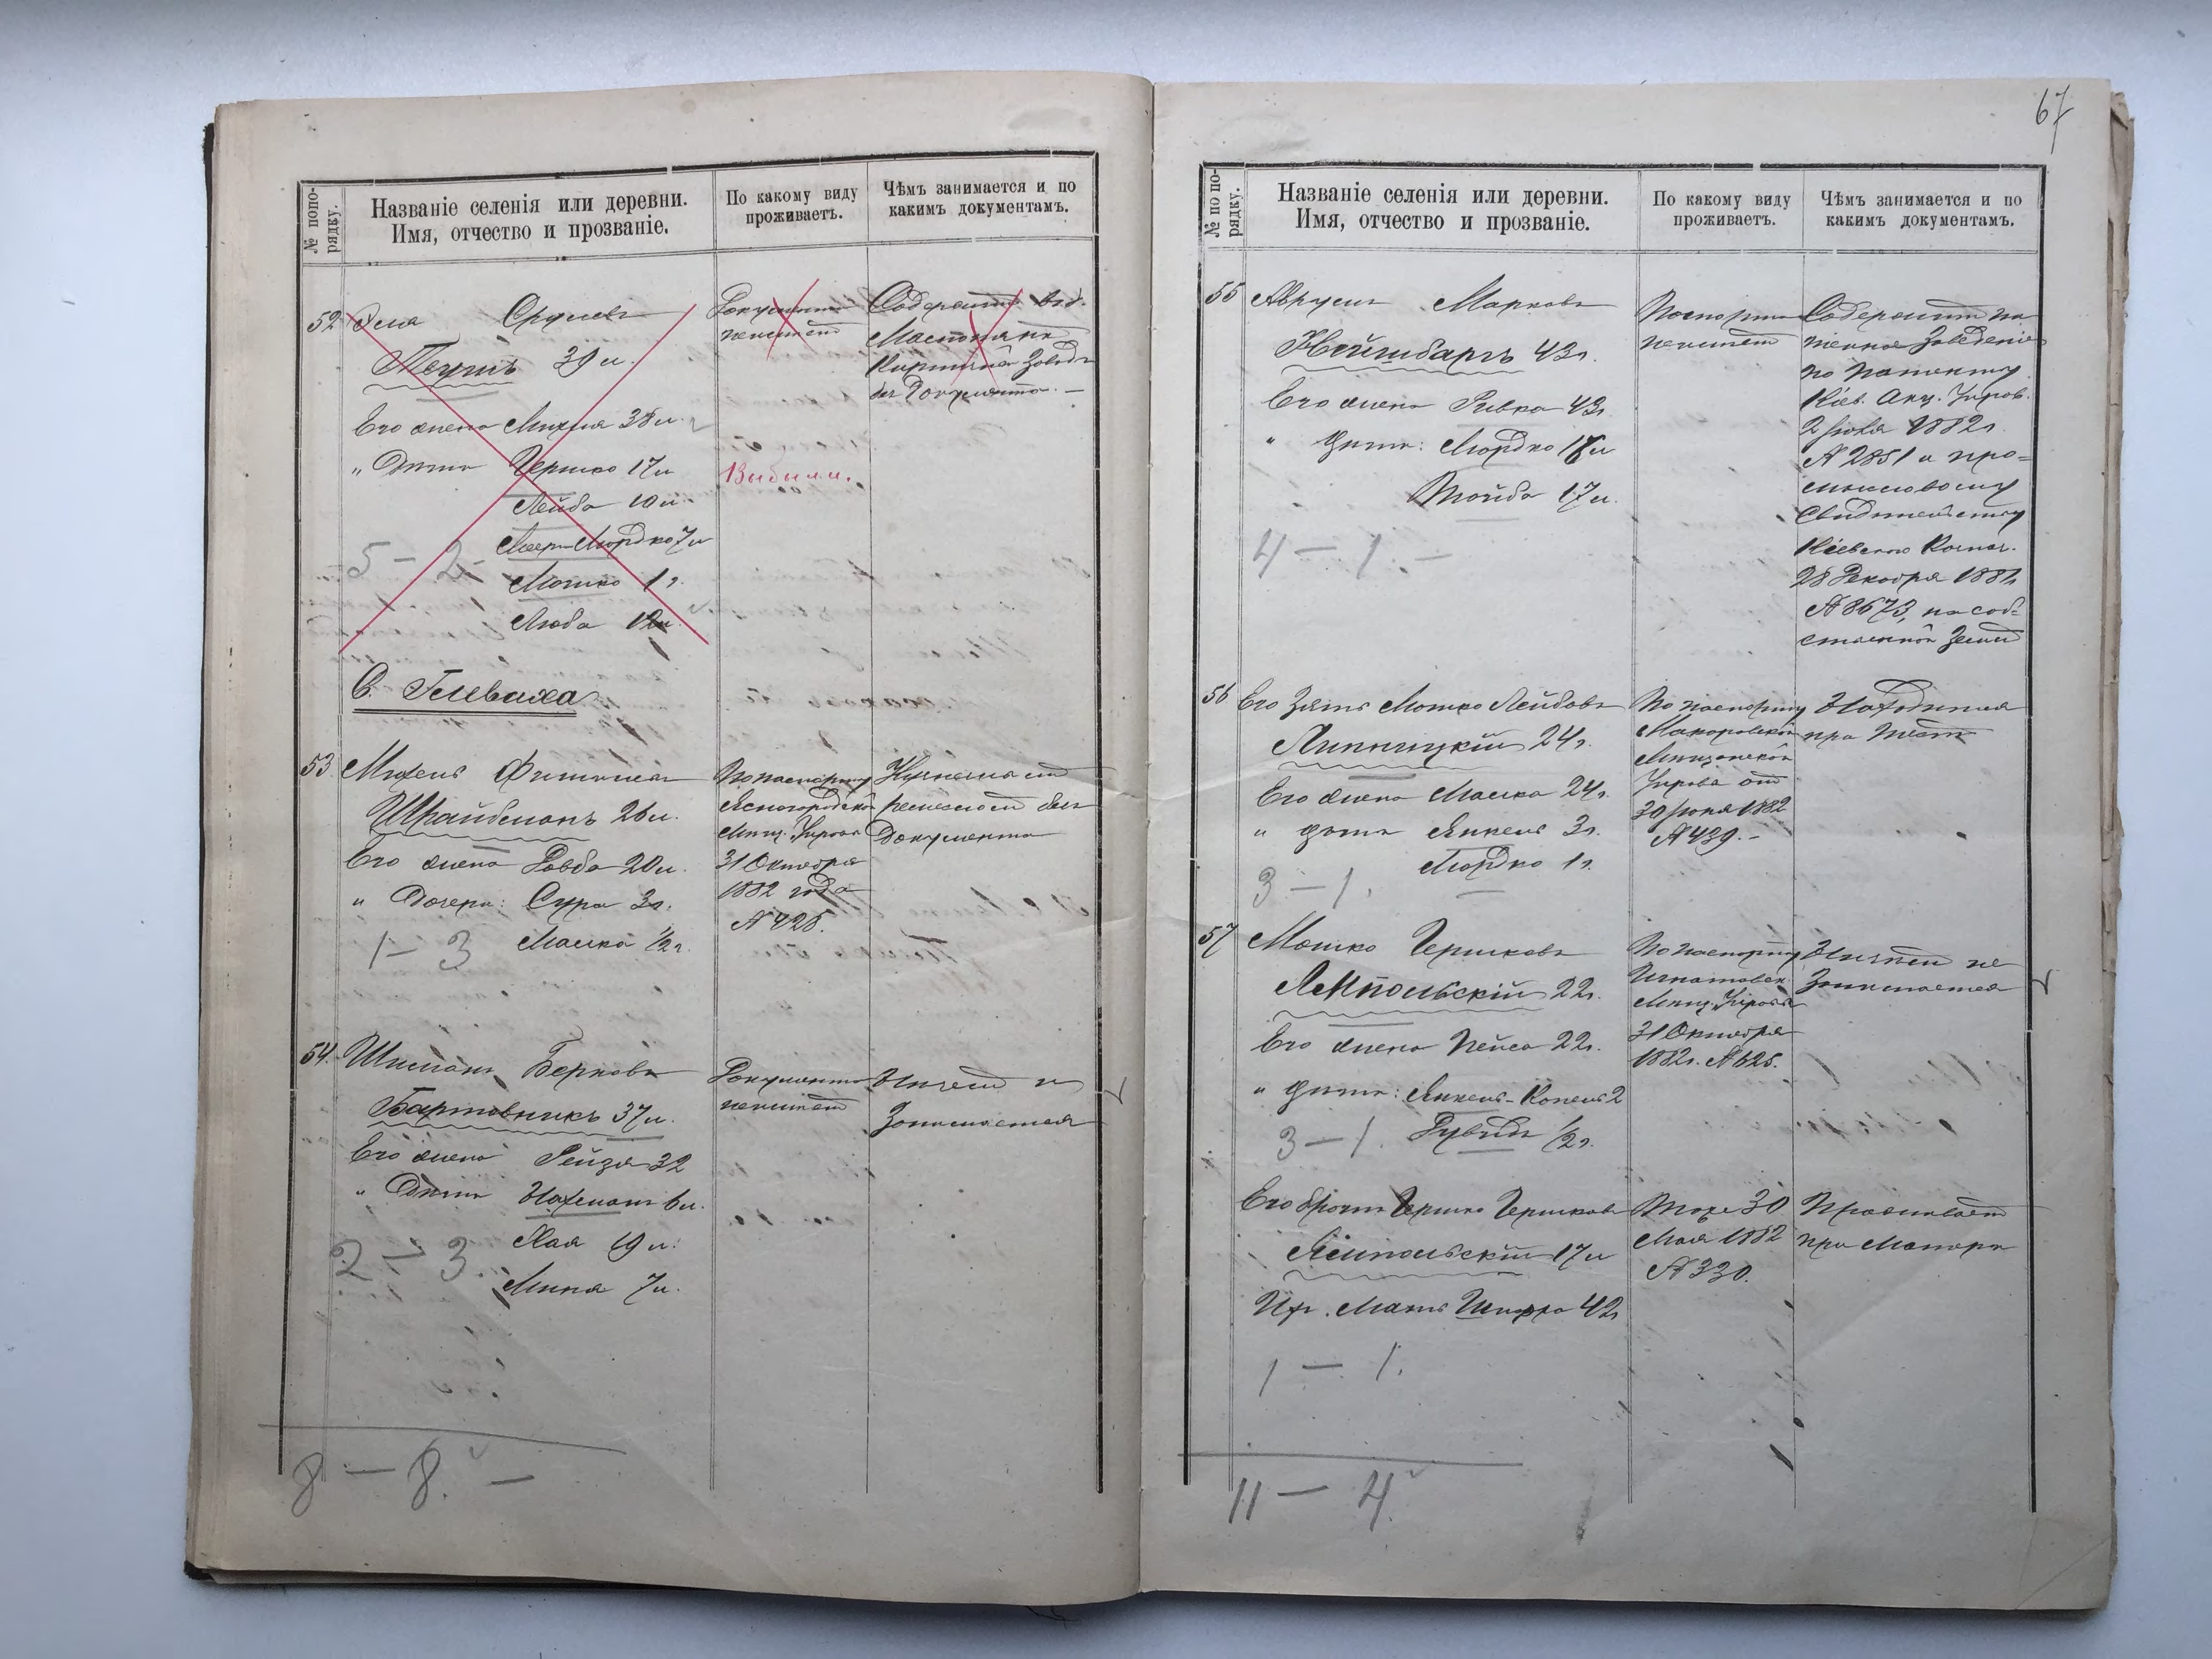 № попо-
рядку.
Названіе селенія или деревни.
Имя, отчество и прозваніе.
По какому виду
проживаетъ.
Чѣмъ занимается и по
какимъ документамъ.
52
Сруlевъ
39 л.
Его жена Михля 38 л.
" Дѣти Гершко 17 л
Лейба 10 л.
Меер-Мордко 7 л
5 - 2
Мошко 1 г.
Люба 12 л.
Документа
неимѣетъ
Выбыли.
Содержитъ
Кирпичный Заводъ
без Документа. —
С. Глеваха
53
Михель Фишелев
Шрайбманъ 26 л.
Его жена 20 л.
" Дочери: Сура 3 г.
1 - 3 Маlка 1/2 г.
По паспорту
Ясногородской
Мѣщ. Управы
31 Октября
1882 года
№ 425.
ремесломъ безъ
Документа
54.
Шмеlонъ Берковъ
Бартовникъ 37 л.
Его жена Рейзя 32
" Дѣти Нахманъ 6 л.
Хая 19 л.
2 - 3.
Миня 7 л.
Документа
неимѣетъ
Ничемъ не
Занимается
8 - 8. -
67
№ по по-
рядку.
Названіе селенія или деревни.
Имя, отчество и прозваніе.
По какому виду
проживаетъ.
Чѣмъ занимается и по
какимъ документамъ.
55
Аврумъ Марковъ
43 г.
Его жена Ривка 43 г.
" Дѣти: Мордко 18 л
Тойба 17 л.
4 - 1. -
Паспорта
неимѣетъ
Содержитъ пи
тейное Заведеніе
по патенту
Кіев. Акц. Управ.
2 Іюля 1882 г.
№ 2851 и про=
мысловому
Свидѣтельству
Кіевского Казнач.
28 Декабря 1881
№ 8673, на соб-
ственной Землѣ
56
Его Зять Мошко Лейбовъ
Липницкій 24 г.
Его жена Маlка 24 г.
" Дѣти Янкель 3 г.
Мордко 1 г.
3 - 1.
По паспорту
Макаровской
Мѣщанской
Управы отъ
30 Іюня 1882
№ 439. -
Находится
при Тестѣ
57
Мошко Гершковъ
Ямпольскій 22 г.
Его жена Пейса 22 г.
" Дѣти: Янкель-Копель 2
3 - 1. Рувинъ 1/2 г.
По паспорту
Игнатовск.
Мѣщ. Управы
31 Октября
1882 г. № 625.
Ничѣмъ не
Занимается
Его братъ Гершко Гершковъ
Ямпольскій 17 л
Их. Мать Шифра 42 г
1 - 1.
Тоже 30
Мая 1882
№ 330.
Проживаетъ
при Матери
11 - 4.